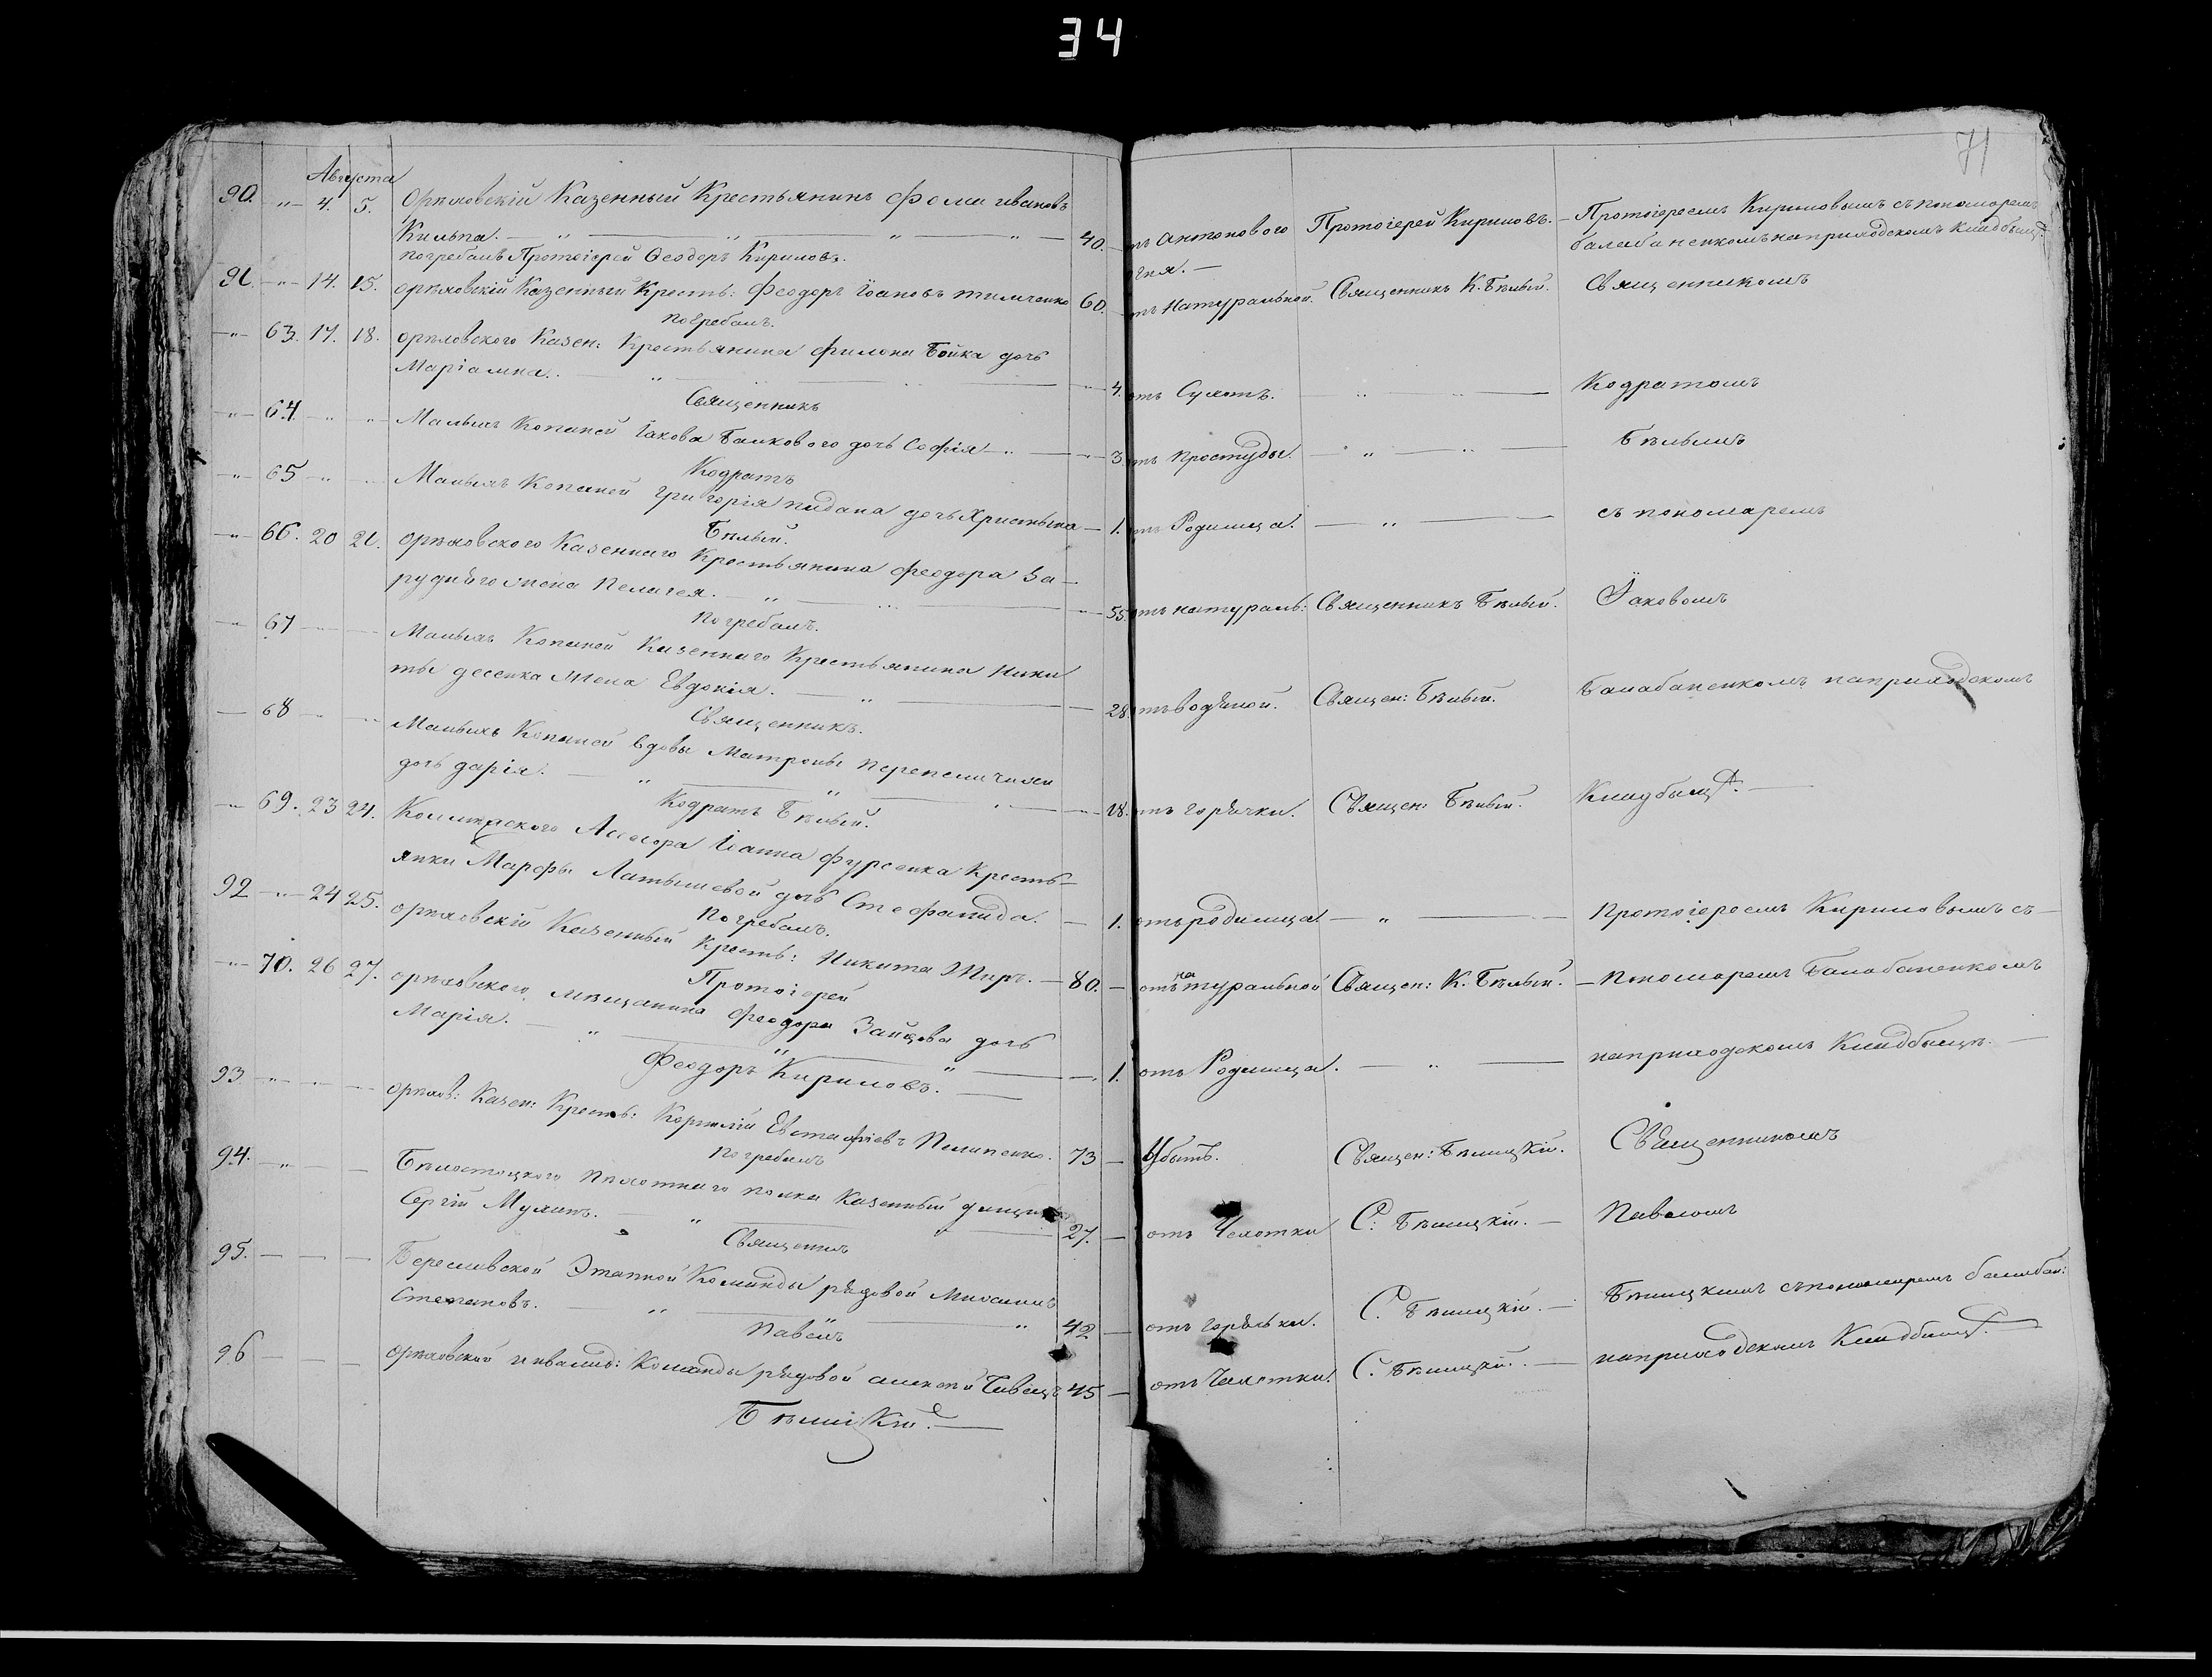 34
71
Августа
90. " 4. 5. Орѣховскій Казенный Крестьянинъ Фома Ивановъ
Кильпа. 40. Антонового Протоіерей Кириловъ. Протоіереемъ Кириловымъ съ пономаремъ
погребалъ Протоіерей Ѳеодоръ Кириловъ. огня. Балабаненкомъ на приходскомъ кладбищѣ
91. " 14. 15. орѣховскій Казенный Кресть: Феодоръ Іоановъ 60. Натуральной. Священникъ К. Бѣлый. Священникомъ
погребалъ.
" 63. 17. 18. орѣховского Казен: Крестьянина Филона Бойка дочь
Маріамна. 4. отъ Сухотъ. Кодратомъ
Священникъ
" 64 " " Малыхъ Копаней Іакова дочь Софія 3. отъ простуды. Бѣлымъ
Кодратъ
" 65 " " Малыхъ Копаней Григорія дочь Христина 1. отъ Родимца. съ пономаремъ
Бѣлый.
" 66. 20 21. орѣховского Казеннаго Крестьянина Феодора За-
руднего жена Пелагея. 55. отъ натураль: Священникъ Бѣлый. Іаковомъ
погребалъ.
" 67 Малыхъ Копаней Казеннаго Крестьянина Ники
ты десенка жена Евдокія. 28. отъ водяной. Священ: Бѣлый. Балабаненкомъ на приходскомъ
Священникъ.
68 Малыхъ Копаней вдовы Матроны
дочь дарія. 18. отъ горячки. Священ: Бѣлый. Кладбищѣ.
Кодратъ Бѣлый.
" 69. 23 24. Ассесора Іоанна Фурсенка Кресть-
янки Марфы Латышевой дочь Стефанида. 1. отъ родимца. Протоіереемъ Кириловымъ съ
погребалъ.
92 " 24 25. орѣховскій Казенный Кресть: Никита Жиръ. 80. отъ натуральной Священ: К. Бѣлый. Пономаремъ Балабаненкомъ
Протоіерей
" 70. 26 27. орѣховского мѣщанина Феодора Зайцова дочь
Марія. 1. отъ Родимца. на приходскомъ Кладбищѣ.
Феодоръ Кириловъ.
93 " " орѣхов: Казен: Кресть: Евстафіевъ Пилипенко. 73 Убытъ. Священ: Бѣлицкій. Священникомъ
погребалъ
94. " Бѣлостоцкого Пѣхотнаго полка Казенный
Сергій Мухинъ. 27. отъ Чехотки С: Бѣлицкій. Павломъ
Священникъ
95. Береславской Этапной Команды рядовой Михаилъ
Степановъ. 42 отъ горячки. С. Бѣлицкій. Бѣлицкимъ съ пономаремъ балабан:
Павелъ
96 Орѣховской инвалид: Команды рядовой алексѣй 45 отъ Чахотки. С. Бѣлицкій. на приходскомъ Кладбищѣ.
Бѣлицкій.